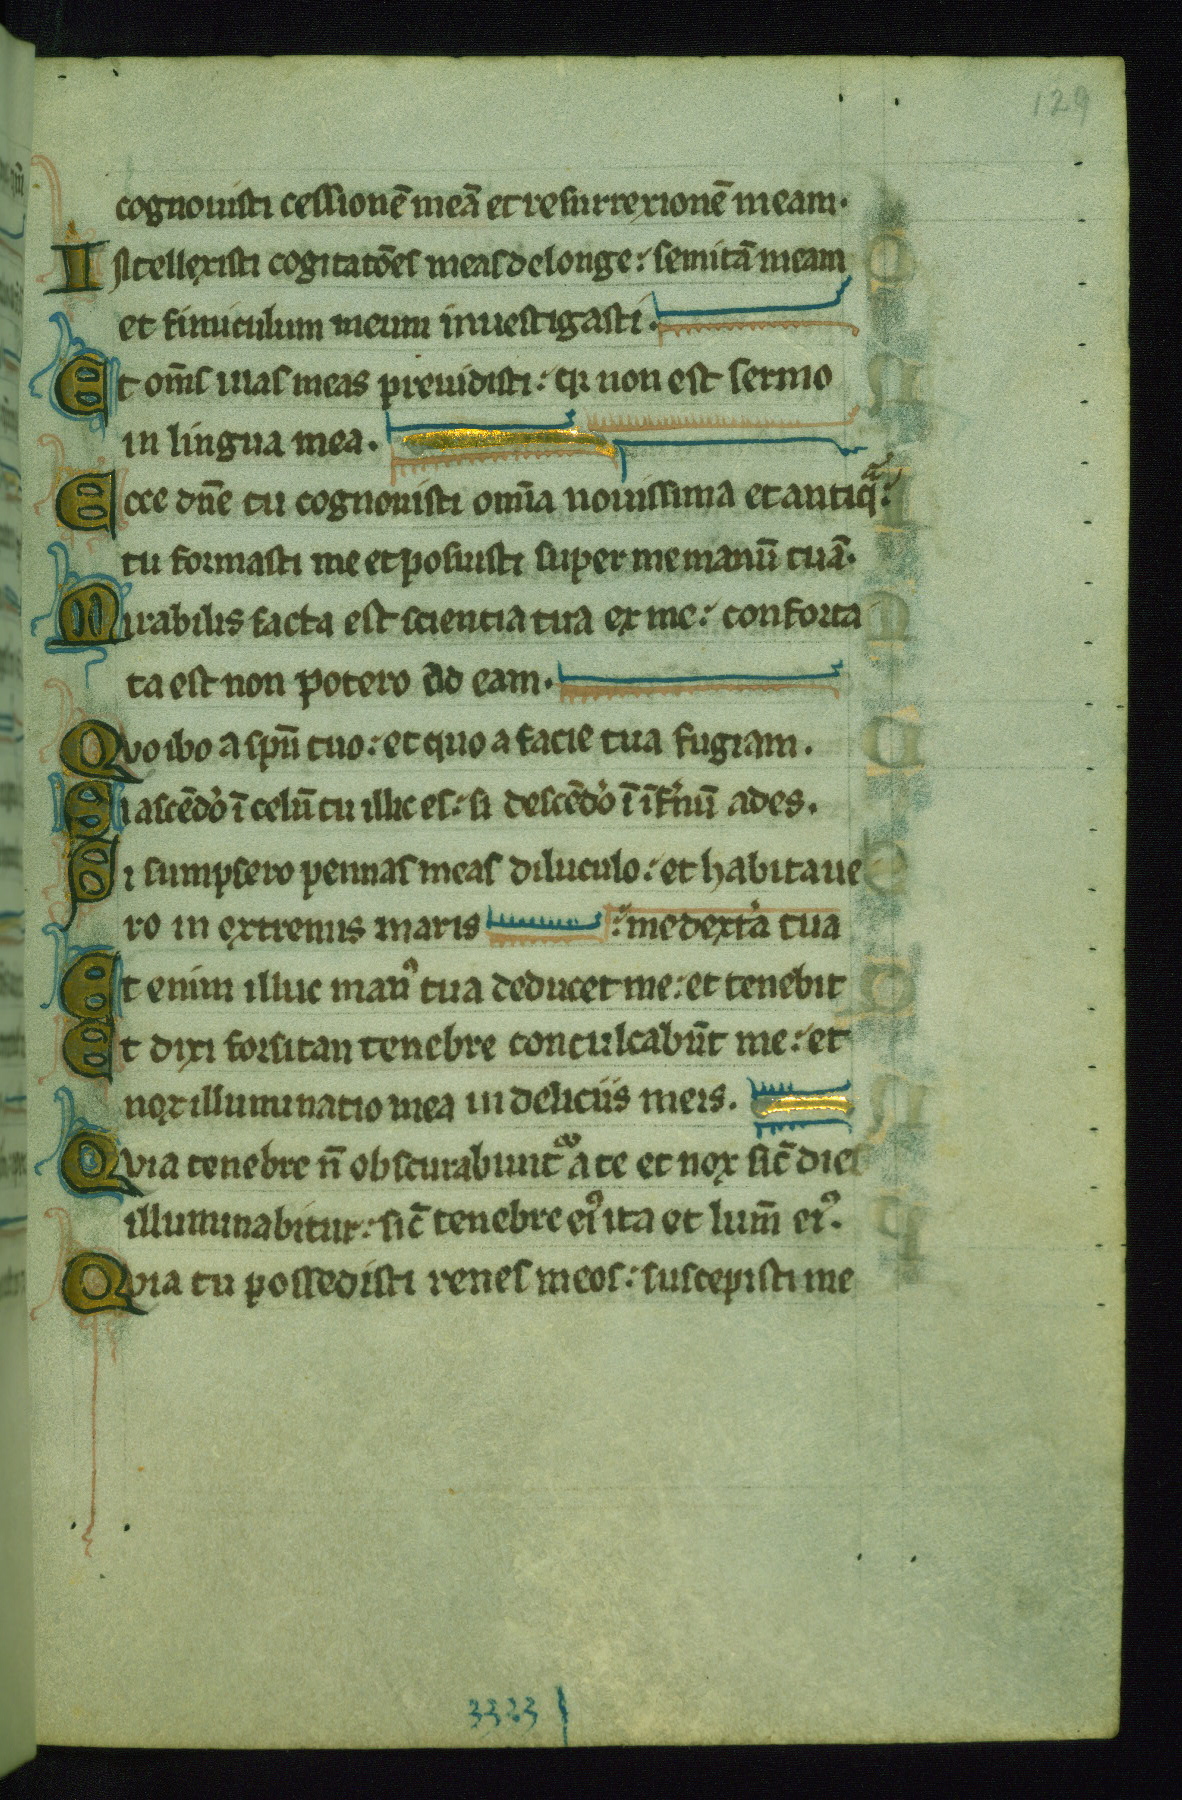 129
cognouisti cessionē meā et resurrexionē meam.
Intellexisti cogitatōes meas de longe: semitā meam
et finiculum meum inuestigasti.
Et om̄s uias meas preuidisti: qr non est sermo
in lingua mea.
Ecce dn̄e tu cognouisti omīa nouissima et antiqᵃ:
tu formasti me et posuisti super me manū tuā.
Mirabilis facta est scientia tua ex me: conforta
ta est non potero ad eam.
Quo ibo a spū tuo: et quo a facie tua fugiam.
Si ascēdo ī celū tu illic es: si descēdo ī īfnū ades.
Si sumpsero pennas meas diluculo: et habitaue
ro in extremis maris
: me dextā tua
Et enim illuc manꝰ tua deducet me: et tenebit
Et dixi forsitan tenebre conculcabūt me: et
nox illuminatio mea in deliciis meis.
Quia tenebre n̄ obscurabunt̉ a te et nox sic̄ dies
illuminabitur: sic̄ tenebre eiꝰ ita et lum̄ eiꝰ.
Quia tu possedisti renes meos: suscepisti me